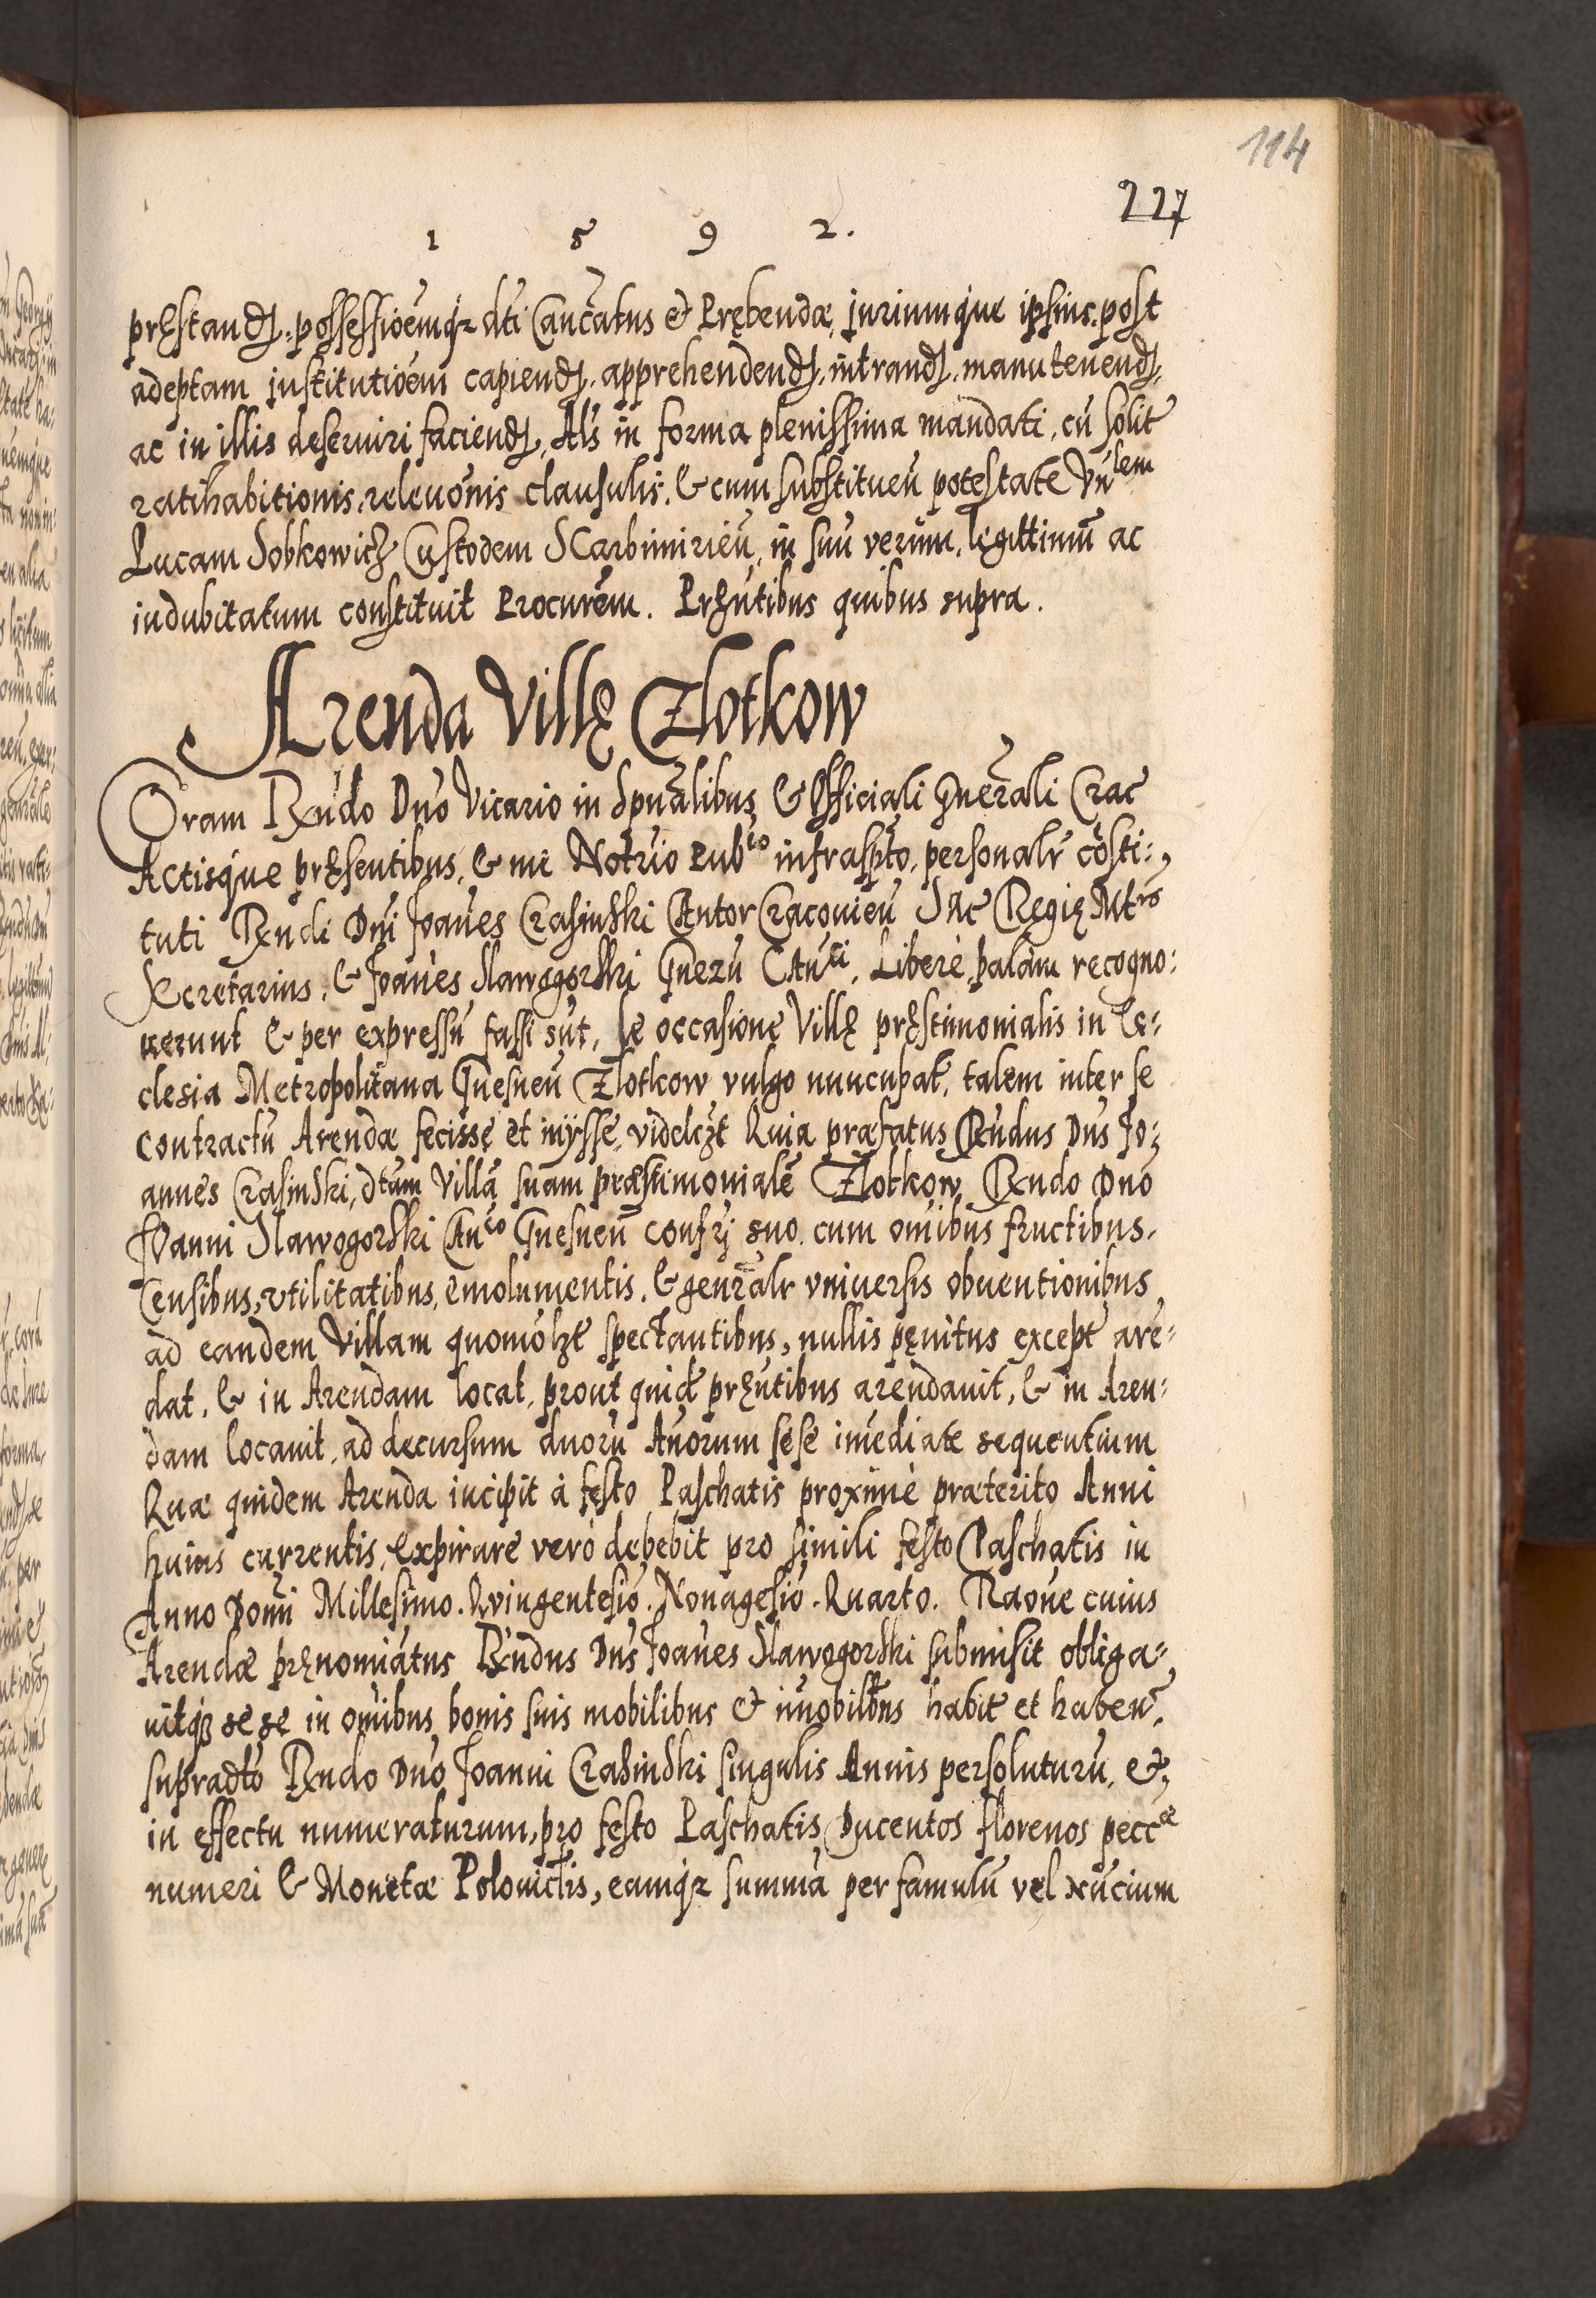 114
227
1 5 9 2.
pręstandj, possessiōemq꜒ dti Canc̄atus et Prębendæ, juriumque ipsius post
adeptam justitutiōem capiendj, apprehendendj, intrandj, manutenendj,
ac in illis deseruiri faciendj, Als in forma plenissima mandati, cū solit
ratihabitionis, releuōnis clausulis, & cum substitueñ potestate Vnlem
Lucam Sobkowicz Custodem SCarbimirieñ, in suū verum, legittimū ac
indubitatum constituit Procurēm. Pręñtibus quibus supra.
Arenda Villę Zlotkow
Coram Rñdo Dno Vicario in Spūalibus & Officiali Gnerali Crac
Actisque pręsentibus, & me Notrio Pubco infrasp̄to, personalr cōsti-
tuti Rñdi Dni Joañes Crasinski Cantor Cracouieñ SAc Regię Mtis
Secretarius, & Joañes Slawogorski Gnezñ CAnci, Liberè, palàm recogno-
uerunt & per expressū fassi sūt, se occasione Villę pręstimonialis in Ec-
clesia Metropolitana Gnesneñ Zlotkow vulgo nuncupat, talem inter se
contractū Arendæ fecisse et inÿsse, videlczt Quia præfatus Rñdus Dns Jo-
annes Crasinski, dtam Villā suam præstimonialē Zlotkow Rñdo Dno
JOanni Slawogorski Canco Gnesneñ confrj suo, cum oñibus fructibus,
Censibus, vtilitatibus, emolumentis, & genralr vniuersis obuentionibus
ad eandem Villam quomolzt spectantibus, nullis pęnitus except are-
dat, & in Arendam locat, prout quid pręñtibus arendauit, & in Aren-
dam locauit, ad decursum duorū Añorum sese imediate sequentium
Quæ quidem Arenda incipit à festo Paschatis proximè præterito Anni
huius currentis, expirare verò debebit pro simili festo Paschatis in
Anno Domi Millesimo. Qvingentesio. Nonagesio. Quarto. Raone cuius
Arendæ prænomiatus Rñdus Dns Joañes Slawogorski submisit obliga-
uitq꜒ se se in oñibus bonis suis mobilibus et imobilbus habit et habeñ,
supradto Rñdo Dno Joanni Crasinski singulis Annis persoluturū, et
in effectu numeraturum, pro festo Paschatis Ducentos florenos peccæ
numeri & Monetæ Polonictis, eamq꜒ summā per famulū vel nūcium